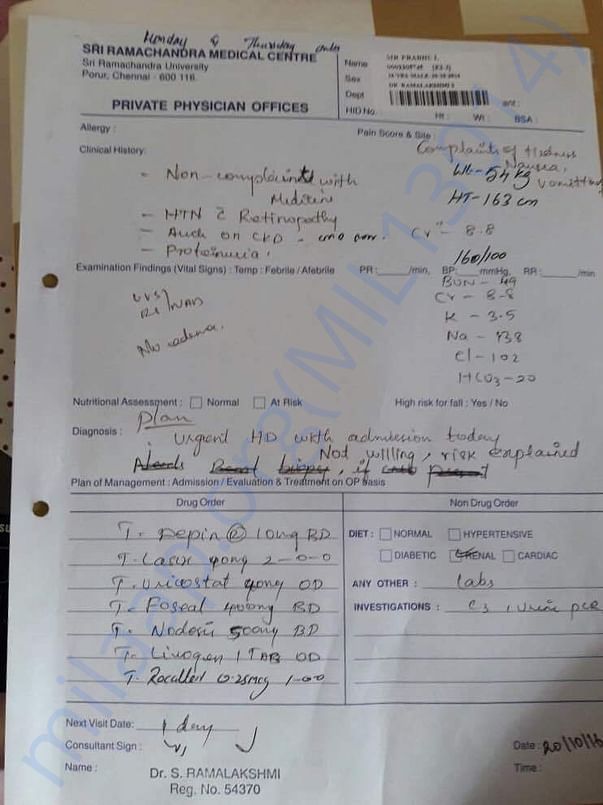 Monday & Thursday
SRI RAMACHANDRA MEDICAL CENTRE
Sri Ramachandra University
Porur, Chennai - 600 116.
PRIVATE PHYSICIAN OFFICES
Name
MR PRABHU L
Sex
Dept
DR RAMALAKSHMI S
HID No. :
Ht :
Wt :
BSA :
Allergy :
Pain Score & Site :
Complaints of tiredness
Nausea,
vomitting
Clinical History:
Wt - 54 kg
HT - 163 cm
- Non-complaint with
Medicine
- HTN c Retinopathy
- CKD
Cr - 8.8
- Proteinuria.
160/100
Examination Findings (Vital Signs) : Temp : Febrile / Afebrile PR : /min, BP: mmHg, RR : /min
BUN - 49
Cr - 8.8
K - 3.5
Na - 138
Cl - 102
HCO3 - 20
CVS
RS NAD
No edema.
Nutritional Assessment : Normal At Risk High risk for fall : Yes / No
Plan
Diagnosis :
Urgent HD with admission today
Not willing, risk explained
Plan of Management : Admission / Evaluation & Treatment on OP basis
Drug Order
Non Drug Order
T. Depin @ 10mg BD
T. Lasix 40mg 2-0-0
T. Uricostat 40mg OD
T. Foseal 400mg BD
T. Nodosis 500mg BD
T. Livogen 1 TAB OD
T. Rocaltrol 0.25mcg 1-0-0
DIET : NORMAL HYPERTENSIVE
DIABETIC RENAL CARDIAC
ANY OTHER : labs
INVESTIGATIONS : C3, Urine PCR
Next Visit Date: 1 day
Consultant Sign :
Name :
Dr. S. RAMALAKSHMI
Reg. No. 54370
Date : 20/10/16
Time :
milaap.org(MIL13014)